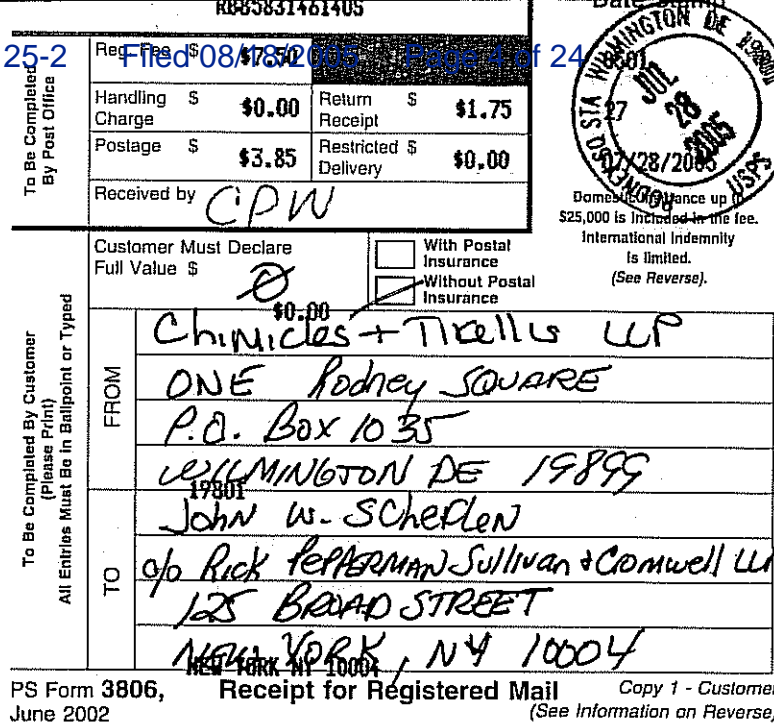 RB858314614US
Date Stamp
25-2 Filed 08/18/2005 Page 4 of 24
To Be Completed By Post Office
Reg. Fee $ $7.50
Handling Charge $ $0.00 Return Receipt $ $1.75
Postage $ $3.85 Restricted Delivery $ $0.00
Received by CPW
0501
27
07/28/2005
RODNEY SQ STA WILMINGTON DE
JUL 28 2005
USPS
Domestic Insurance up to
$25,000 is included in the fee.
International Indemnity
is limited.
(See Reverse).
Customer Must Declare
Full Value $ 0
$0.00
With Postal Insurance
Without Postal Insurance
To Be Completed By Customer
(Please Print)
All Entries Must Be in Ballpoint or Typed
FROM
Chimicles + Tikellis LLP
ONE Rodney SQUARE
P.O. Box 1035
WILMINGTON DE 19899
19801
TO
John W. Scheflen
c/o Rick PEPPERMAN Sullivan + Cromwell LLP
125 BROAD STREET
NEW YORK, NY 10004
NEW YORK NY 10004
PS Form 3806, Receipt for Registered Mail Copy 1 - Customer
June 2002 (See Information on Reverse)